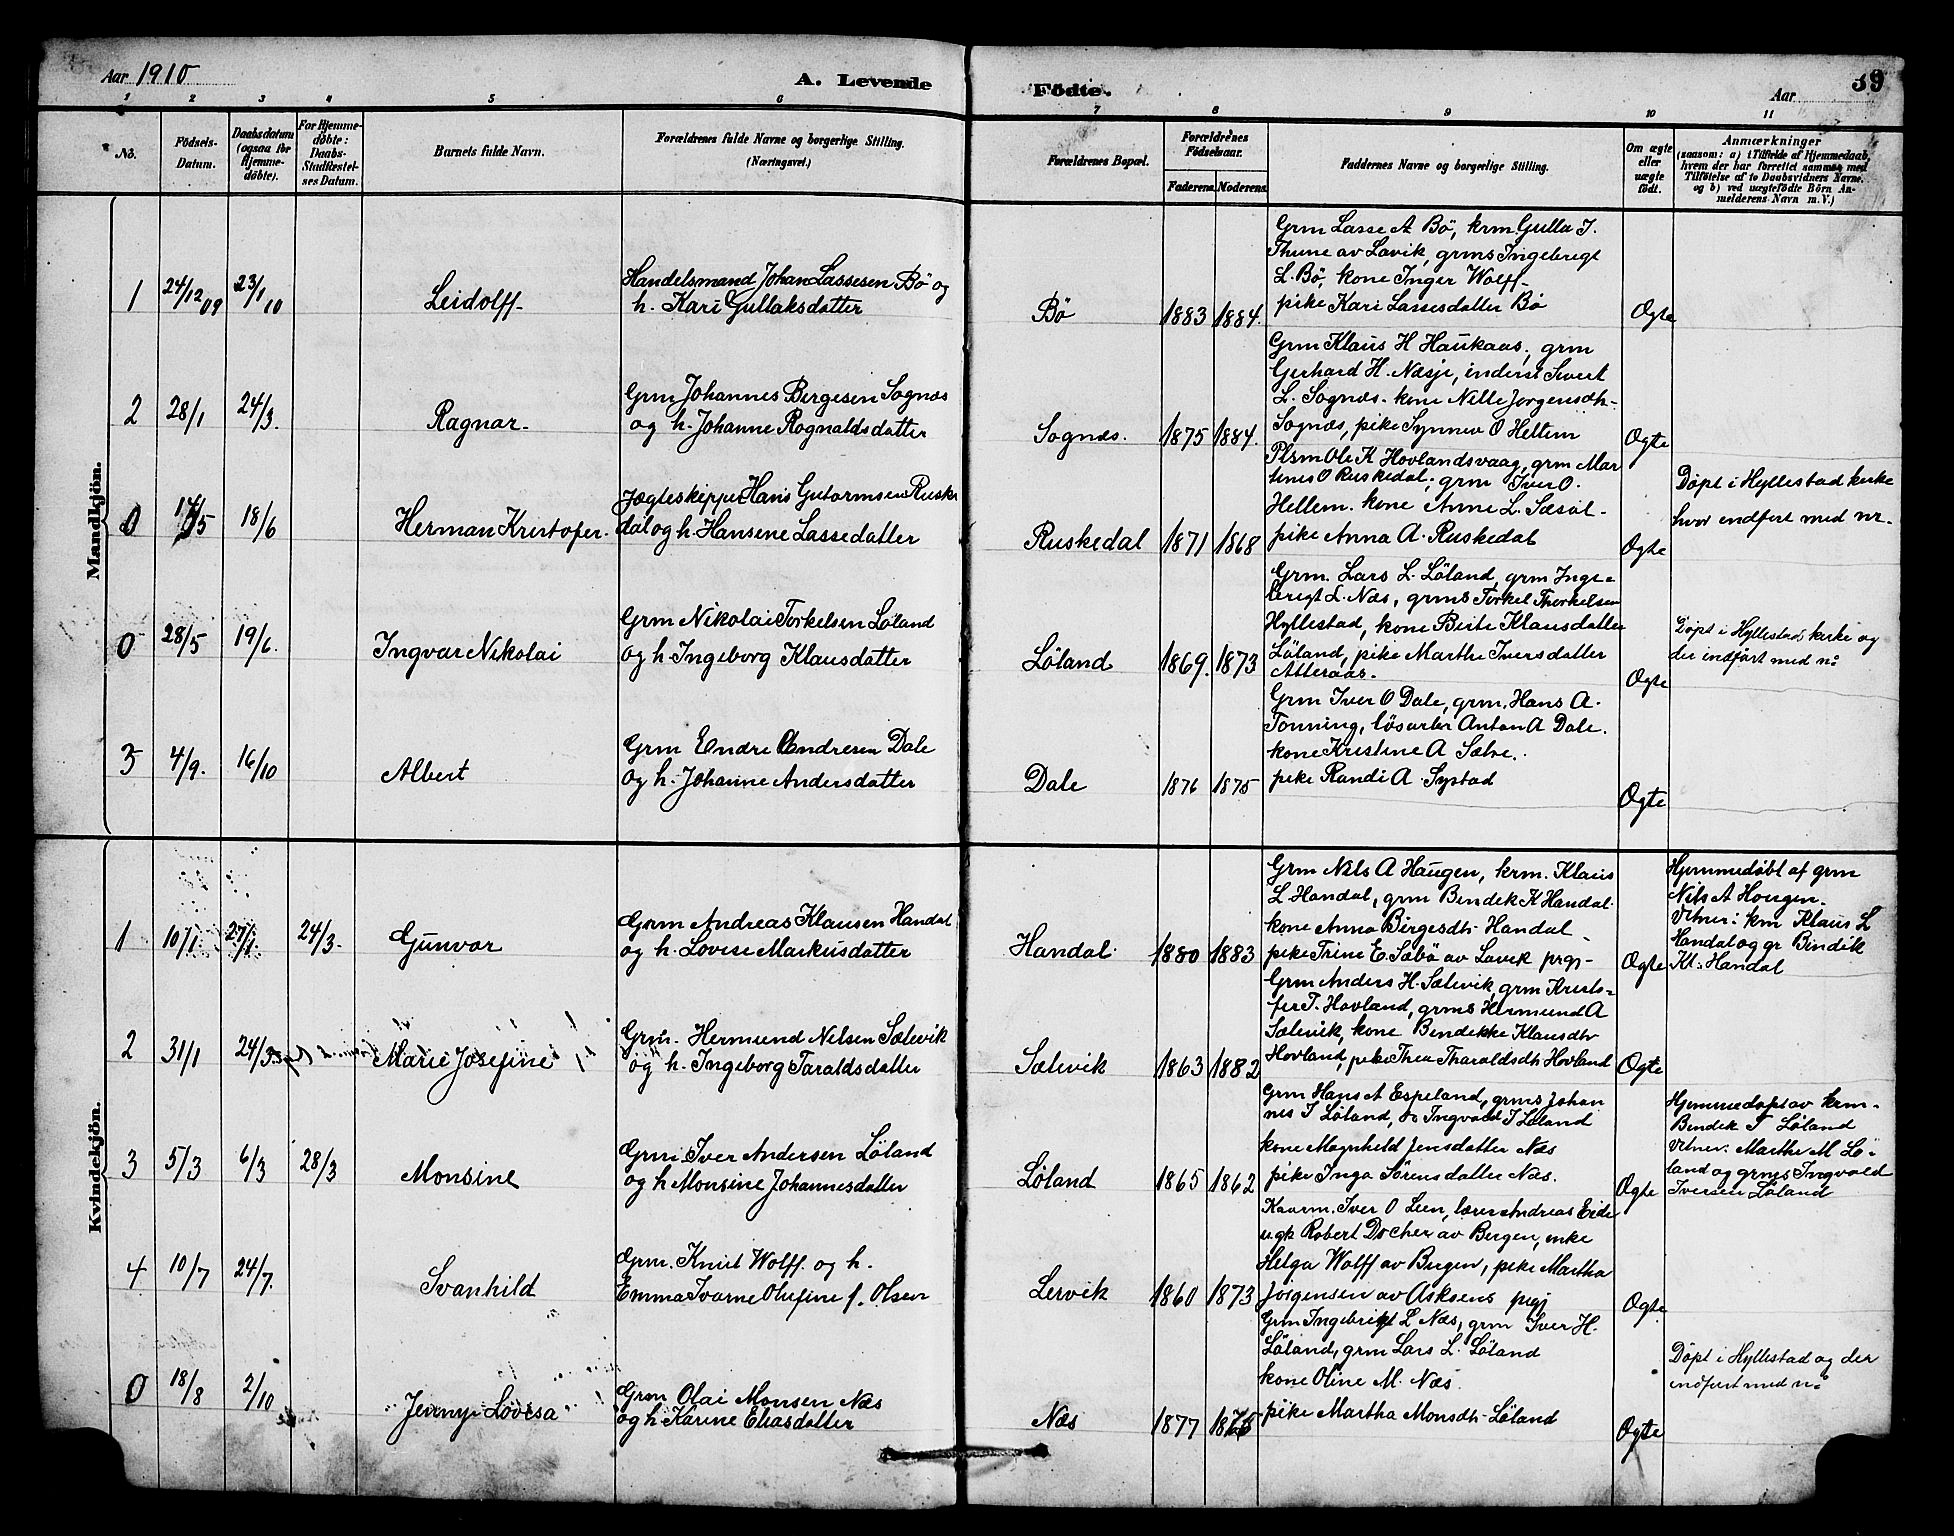 Aar 1910
A. Levende
Födte.
Aar
39
1 2 3 4 5 6 7 8 9 10 11
No.
Födsels-
Datum.
Daabsdatum
(ogsaa for
Hjemme-
döbte).
For Hjemme-
döbte:
Daabs-
Stadfæstel-
ses Datum.
Barnets fulde Navn.
Forældrenes fulde Navne og borgerlige Stilling.
(Næringsvei.)
Forældrenes Bopæl.
Forældrenes
Födselsaar.
Faderens. Moderens.
Faddernes Navne og borgerlige Stilling.
Om ægte
eller
uægte
födt.
Anmærkninger
(saasom: a) i Tilfælde af Hjemmedaab,
hvem der har forrettet samme med
Tilföielse af to Daabsvidners Navne.
og b) ved uægtefödte Börn An-
melderens Navn m. V.)
Mandkjön.
1
24/12 09
23/1 10
Leidolff
Handelsmand Johan Lassesen Bö og
h. Kari Gullaksdatter
Bö
1883 1884.
Grm Lasse A Bö, krm Gulla J.
Thune av Lavik, grms Ingebregt
L. Bö, kone Inger Wolff-
pike Kari Lassesdatter Bö
Ægte
2
28/1
24/3.
Ragnar.
Grm Johannes Bergesen Sognæs
og h. Johanne Rognaldsdatter
Sognæs.
1875 1884.
Grm Klaus H Haukaas, grm
Gerhard H. Næsje, inderst Sivert
L. Sognæs- kone Nille Jorgensdh-
Sognæs, pike Synnev O Hellem
Ægte
0
18/6
Herman Kristofer.
Jægteskipper Hans Gutormsen Ruske
dal og h. Hansine Lassedatter
Ruskedal
1871 1868
Plsm Ole K Hovlandsvaag, grm Mar
tines O Ruskedal, grm Iver O.
Hellem. kone Anne L. Sæsöl-
pike Anna A. Ruskedal
Ægte
Döpt i Hyllestad kirke
hvor indfört med nr.
0
28/5
19/6.
Ingvar Nikolai
Grm Nikolai Torkelsen Löland
og h. Ingeborg Klausdatter
Löland
1869. 1873
Grm. Lars L. Löland, grm Inge=
bregt L. Næs, grms Torkel Thorkelsen
Hyllestad, kone Berte Klausdatter
Löland, pike Marthe Iversdatter
Atteraas.
Ægte
Döpt i Hyllestad kirke og
der indfört med no
3
4/9.
16/10
Albert
Grm Endre Andresen Dale
og h. Johanne Andersdatter
Dale
1876 1875
Grm Iver O Dale, grm. Hans A.
Tonning, lösarbr Anton A Dale.
kone Kristine A Sælve.
pike Randi A. Systad
Ægte
Kvindekjön.
1
10/1.
27/1.
24/3.
Gunvor
Grm Andreas Klausen Handal
og h. Lovise Markusdatter
Handal.
1880 1883
Grm Nils A Haugen, krm. Klaus
L Handal, grm Bendik K Handal.
kone Anna Birgesdtr Handal
pike Trine E. Sæbö av Lavik prgj-
Ægte
Hjemmedöbt af grm
Nils A Hougen.
Vitner: km Klaus L
Handal og gr Bindik
Kl. Handal
2
31/1
24/3
Marie Josefine
Grm. Hermund Nilsen Sælevik
og h. Ingeborg Taraldsdatter
Sælevik
1863 1882
Grm Anders H. Sælevik, grm Kristo=
fer T. Hovland, grms Hermund A
Sælevik, kone Bendikke Klausdtr
Hovland, pike Thea Tharaldsdtr Hovland
Ægte
3
5/3
6/3
28/3
Monsine
Grm Iver Andersen Löland
og h Monsine Johannesdatter
Löland
1865 1862
Grm Hans A Espeland, grms Johan
nes I Löland, do Ingvald I Löland
kone Magnhild Jensdatter Næs
pike Inga Sörensdatter Næs.
Ægte
Hjemmedöpt av krm-
Bendik T Löland
Vitner: Marthe M Lö-
land og grms Ingvald
Iversen Löland
4
10/7
24/7.
Svanhild
Grm. Knut Wolff. og h.
Emma Ivarne Olufine f. Olsen
Lervik
1860 1873
Kaarm. Iver O Leen, lærer Andreas Eide
ugk Robert Docher av Bergen, enke
Helga Wolff av Bergen, pike Martha
Jörgensen av Askens prgj
Ægte
0
18/8
2/10
Jenny Lovisa
Grm Olai Monsen Næs
og h Karine Eliasdatter
Næs
1877
Grm Ingebrigt L Næs, grm Iver H.
Löland, grm Lars L. Löland
kone Oline M. Næs.
pike Martha Monsdtr Löland
Ægte
Döpt i Hyllestad og der
indfört med no